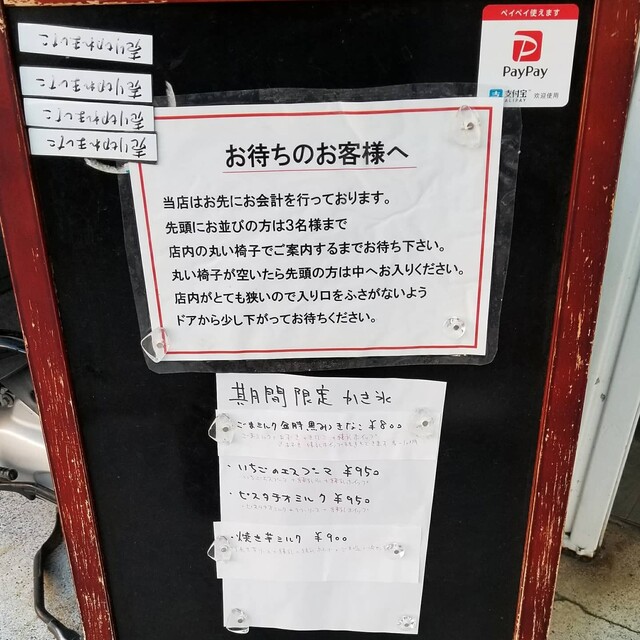 売り切れました
売り切れました
売り切れました
売り切れました
ペイペイ使えます
PayPay
支付宝
ALIPAY
欢迎使用
お待ちのお客様へ
当店はお先にお会計を行っております。
先頭にお並びの方は3名様まで
店内の丸い椅子でご案内するまでお待ち下さい。
丸い椅子が空いたら先頭の方は中へお入りください。
店内がとても狭いので入り口をふさがないよう
ドアから少し下がってお待ちください。
期間限定 かき氷
ごまミルク金時黒みつきなこ ¥800
・いちごのエスプーマ ¥950
・ピスタチオミルク ¥950
・焼き芋ミルク ¥900